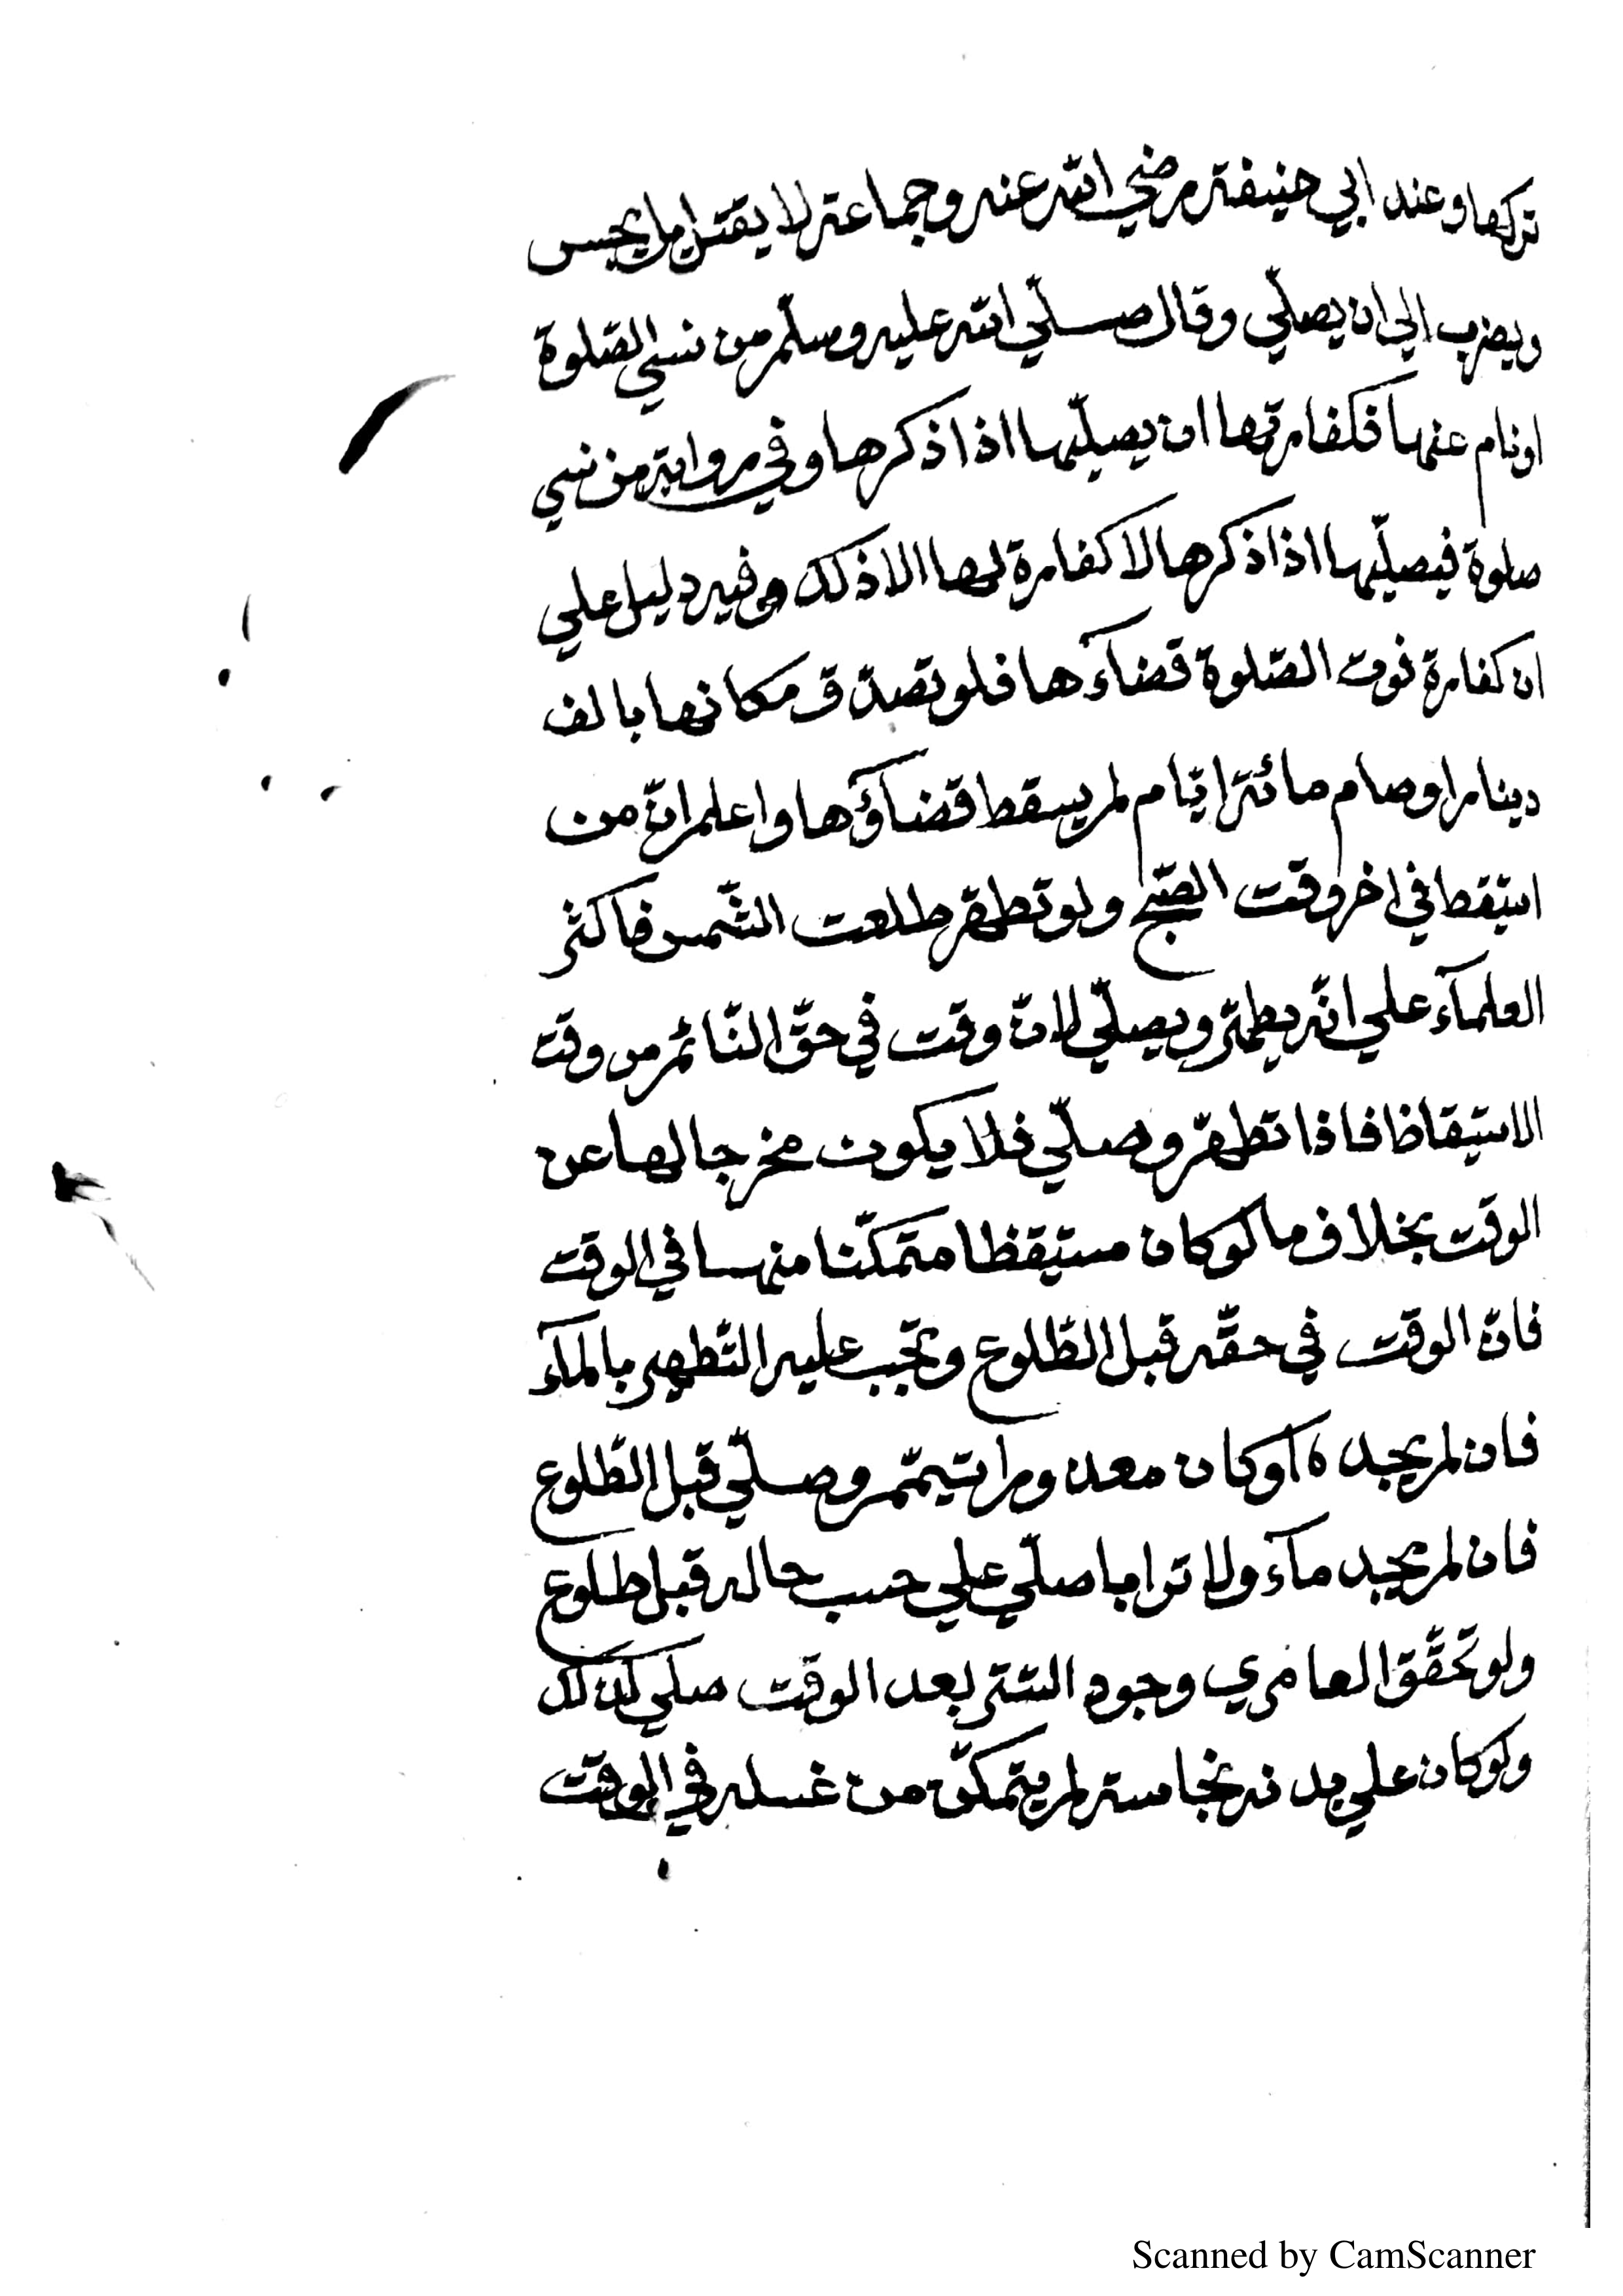 تركها وعند ابي حنيفة رضي الله عنه وجماعة لا يقتل بل يحبس
ويضرب الي ان يصلّي وقال صلّي الله عليه وسلّم من نسي الصّلوة
او نام عنها فكفارتها ان يصيلّيها اذا ذكرها وفي رواية من نسي
صلوة فيصيلّيها اذا ذكرها لا كفارة لها الا ذلك وفيه دليل علي
ان كفارة فوت الصّلوة قضاءها فلو تصدّق مكانها بالف
دينار او صام مائة ايّام لم يسقط قضاؤها واعلم انّ من
استيقط في اخر وقت الصّبح ولو تطهّر طلعت الشّمس فاكثر
العلماء علي انّه يطهّر ويصلّي لانّ وقت في حقّ النّائم من وقت
الاستيقاظ فاذا تطهّر وصلّي فلا يكون مخرجا لها عن
الوقت بخلاف ما لو كان مستيقظا متمكّنا منها في الوقت
فانّ الوقت في حقّه قبل الطّلوع وتجب عليه التّطهير بالماء
فان لم يجده او كان معذورا تيمّم وصلّي قبل الطّلوع
فان لم يجد ماء ولا ترابا صلّي علي حسب حاله قبل طلوع
ولو تحقّق العاري وجود السّتر بعد الوقت صلي كذلك
ولو كان علي بدنه نجاسة لم يتمكّن من غسله في الوقت
Scanned by CamScanner